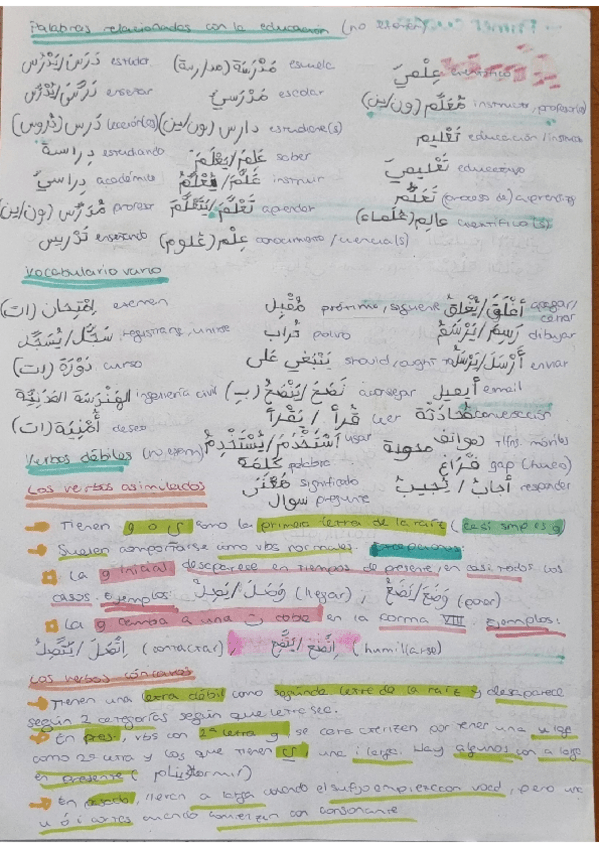 Palabras relacionadas con la educación (no examen)
دَرَسَ/يَدْرُس estudiar مَدْرَسَة (مدارسة) escuela عِلْمِيّ científico
دَرَّسَ/يُدَرِّس enseñar مَدْرَسِيّ escolar مُعَلِّم (ون/ين) instructor, profesor(a)
دَرس (دُروس) lección(es) دارس (ون/ين) estudiante(s) تَعْليم educación /
دِراسة estudiando عَلِمَ/يَعْلَمُ saber تَعْليميّ educativo
دِراسيّ académico عَلَّمَ/يُعَلِّمُ instruir تَعَلُّم (proceso de)
مُدَرِّس (ون/ين) profesor تَعَلَّمَ/يَتَعَلَّمُ aprender عالِم (عُلَماء) científico(s)
تَدْريس enseñando عِلْم (عُلوم) conocimiento / ciencia(s)
Vocabulario vario
اِمْتِحان (ات) examen مُقْبِل próximo, siguiente أَغْلَقَ/يُغْلِقُ apagar/
cerrar
سَجَّلَ / يُسَجِّل registrarse, unirse تُراب polvo رَسَمَ/يَرْسُمُ dibujar
دَوْرَة (ات) curso يَنْبَغي عَلى should, ought to أَرْسَلَ/يُرْسِلُ enviar
الهَنْدَسَة المَدَنيّة ingeniería civil نَصَحَ/يَنْصَحُ (بِ) aconsejar أيميل email
أُمْنِيَة (ات) deseo قَرَأَ / يَقْرَأ leer مُحادَثة conversación
Verbos débiles (no examen) اسْتَخْدَمَ/يَسْتَخْدِمُ usar هواتف tlfns. móviles
كَلِمَة palabra فَراغ gap (hueco)
Los verbos asimilados مَعْنى significado أجابَ / يُجيبُ responder
سوال pregunta
Tienen و o ي como la primera letra de la raíz (casi simpre و)
Suelen comportarse como vbs normales. Excepciones:
La و inicial desaparece en tiempos de presente, en casi todos los
casos. Ejemplos: وَصَلَ/يَصِلُ (llegar), وَضَعَ/يَضَعُ (poner)
La و cambia a una ت doble en la forma VIII. Ejemplos:
اِتَّصَلَ / يَتَّصِلُ (contactar), اِتَّضَعَ/يَتَّضِع (humillarse)
Los verbos cóncavos
Tienen una letra débil como segunda letra de la raíz y desaparece
según 2 categorías según que letra sea.
En pres., vbs con 2ª letra و se caracterizan por tener una u larga
como 2ª letra y los que tienen ي, una i larga. Hay algunos con a larga
en presente (dormir)
En pasado, llevan a larga cuando el sufijo empieza con vocal, pero una
u ó i cortas cuando comienzan con consonante